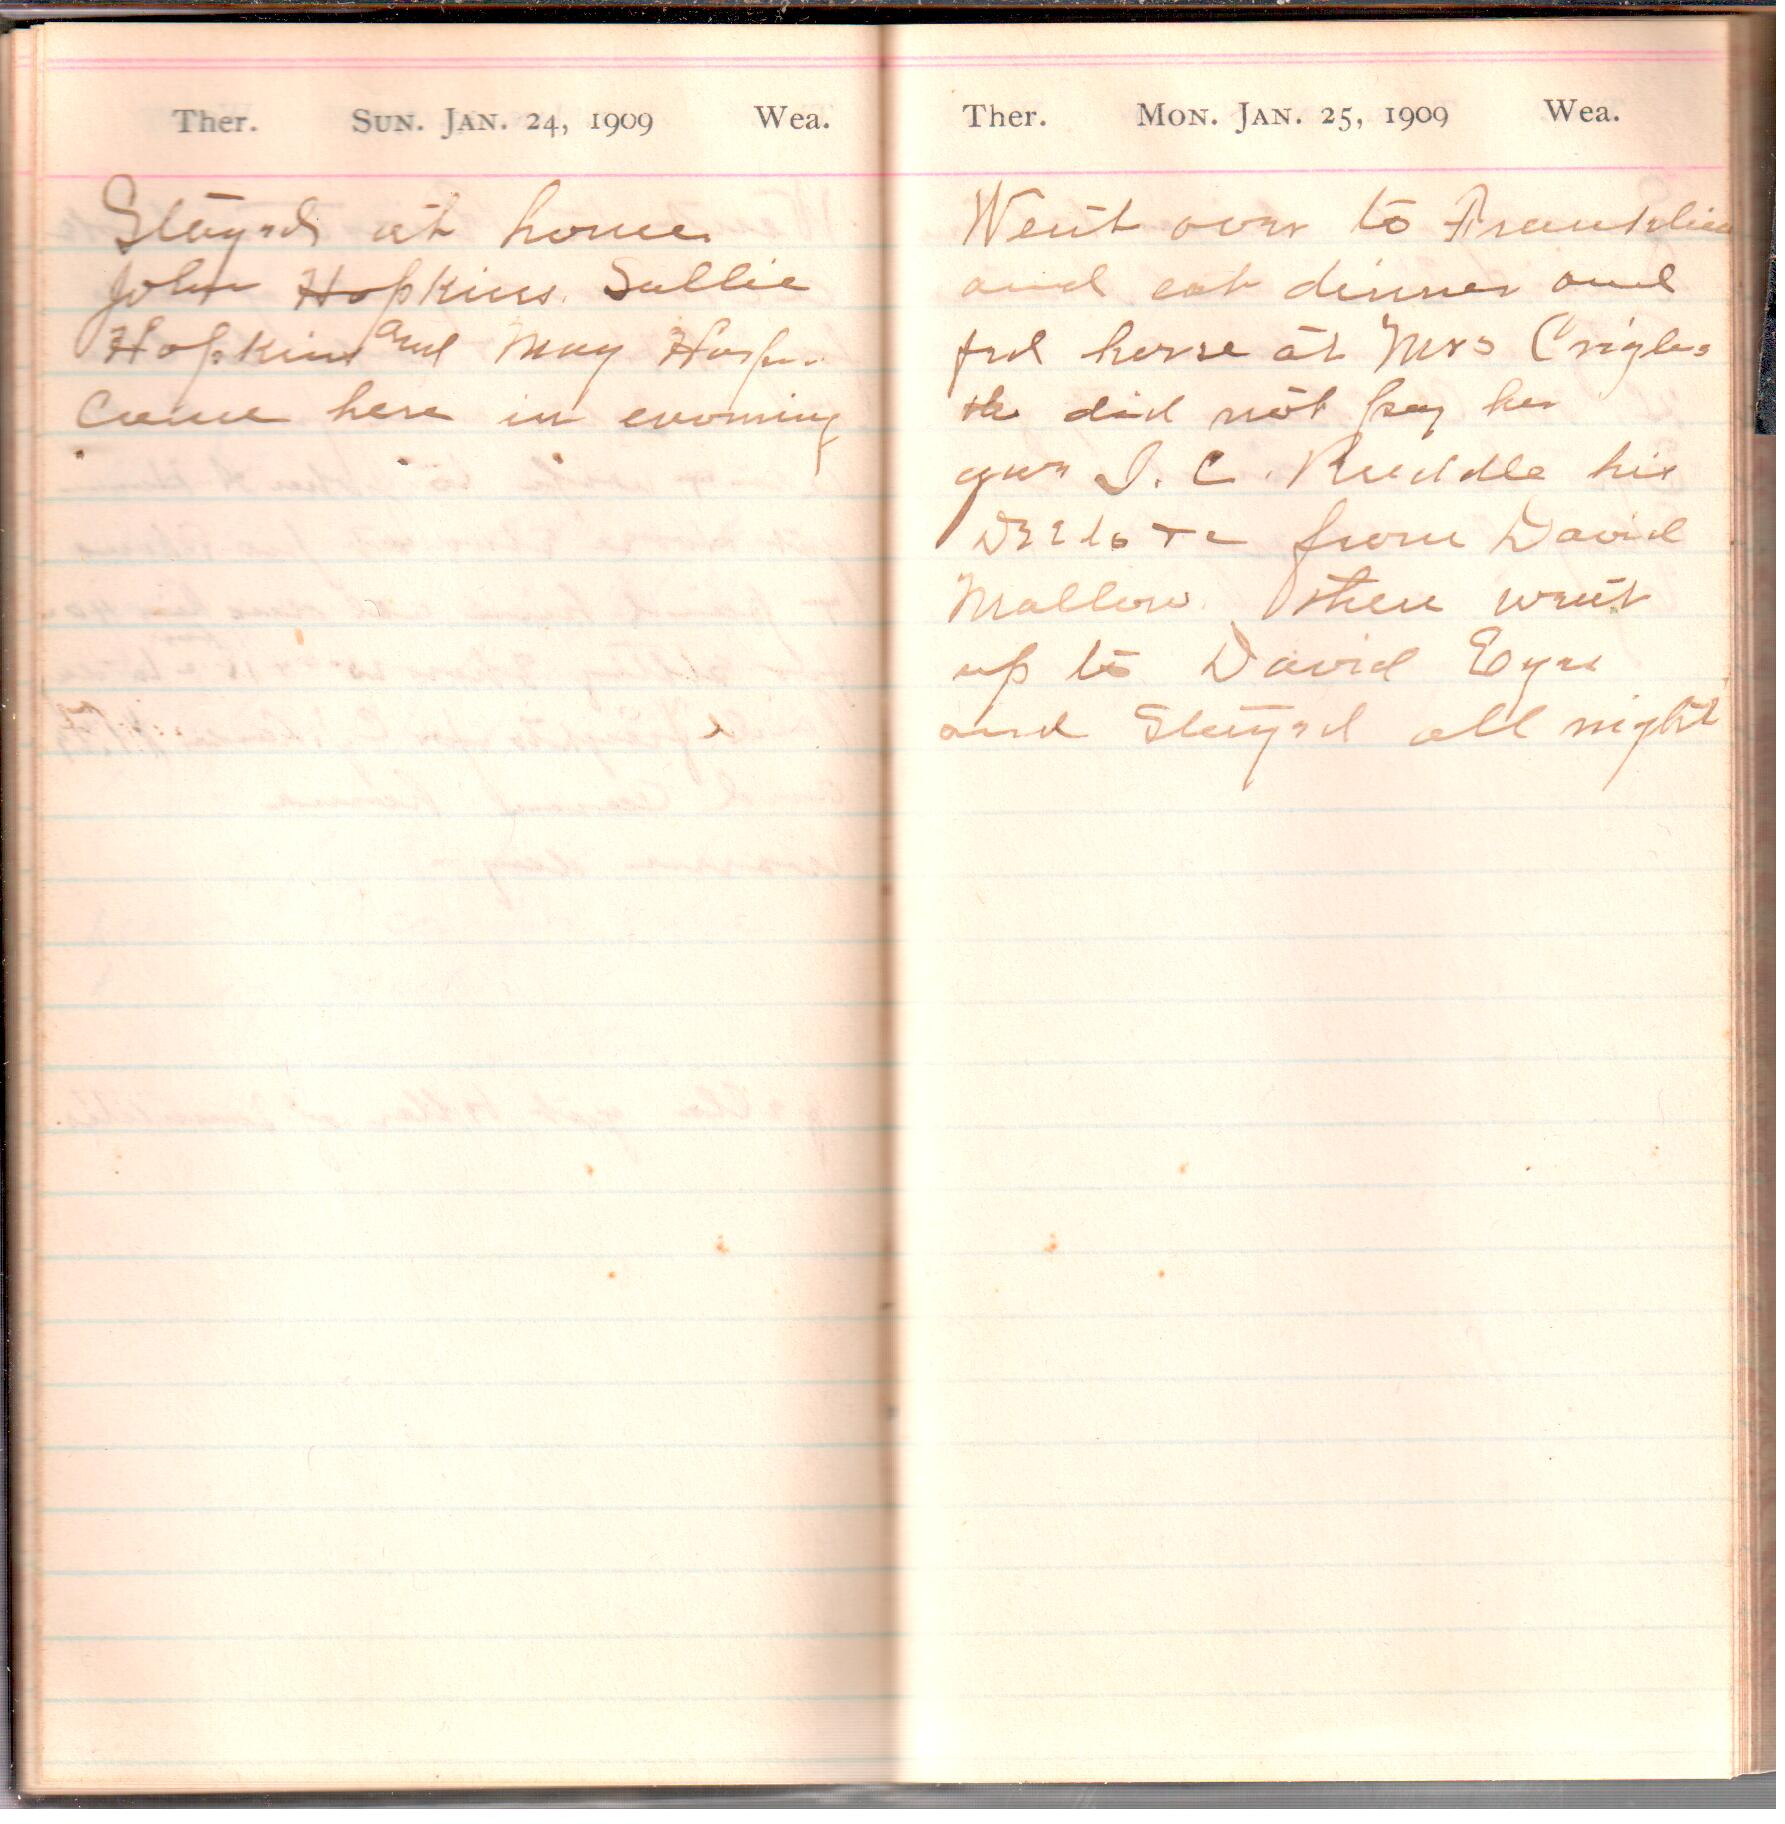 Ther. Sun. Jan. 24, 1909 Wea.
Stayed at home
John Hopkins. Sallie
Hopkins and May Hop.
Came here in evening
Ther. Mon. Jan. 25, 1909 Wea.
Went over to Franklin
and eat dinner and
fed horse at Mrs Crigler
did not pay her
gave I. C. Ruddle his
from David
Mallow. then went
up to David Eye
and Stayed all night